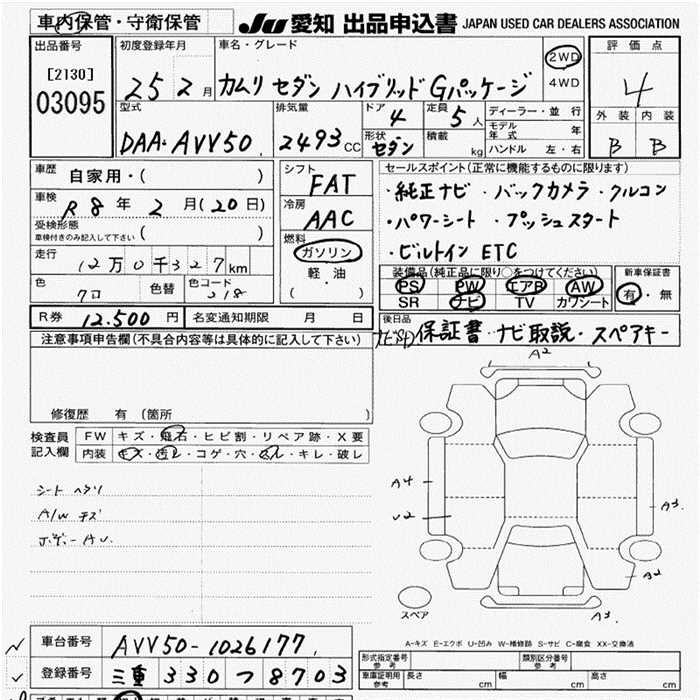 車内保管・守衛保管
JU 愛知 出品申込書 JAPAN USED CAR DEALERS ASSOCIATION
出品番号
[2130]
03095
初度登録年月
25 2 月
車名・グレード
カムリ セダン ハイブリッド Gパッケージ
2WD
4WD
評価点
4
外装 内装
B B
型式
DAA-AVV50
排気量
2493 CC
ドア
4
定員
5 人
形状
セダン
積載
kg
ディーラー・並行
モデル年式 年
ハンドル 左・右
車歴
自家用・( )
車検
R8年 2月(20日)
受検形態
車検付きのみ記入して下さい ( )
走行
12万0千327km
色
色替
色コード
クロ 218
シフト
FAT
冷房
AAC
燃料
ガソリン
軽・油
( )
セールスポイント(正常に機能するものに限ります)
・純正ナビ ・バックカメラ ・クルコン
・パワーシート ・プッシュスタート
・ビルトイン ETC
装備品(純正品に限り○をつけてください)
PS PW エアB AW
SR ナビ TV カワシート
新車保証書
有・無
R券 12.500 円
名変通知期限 月 日
後日品
保証書・ナビ取説・スペアキー
注意事項申告欄(不具合内容等は具体的に記入して下さい)
修復歴 有 (箇所 )
検査員
記入欄
FW キズ・飛石・ヒビ割・リペア跡・X要
内装 キズ・汚レ・コゲ・穴・スレ・キレ・破レ
シート ヘタリ
A/W キズ
ボデー AU
A2
A4
U2
A3
A2
A3
スペア
A-キズ E-エクボ U-凹み W-補修跡 S-サビ C-腐食 XX-交換済
車台番号 AVV50-1026177
登録番号 三重 330 つ 8703
形式指定番号 参考
類別区分番号 参考
車庫証明用 参考 長さ cm 幅 cm 高さ cm